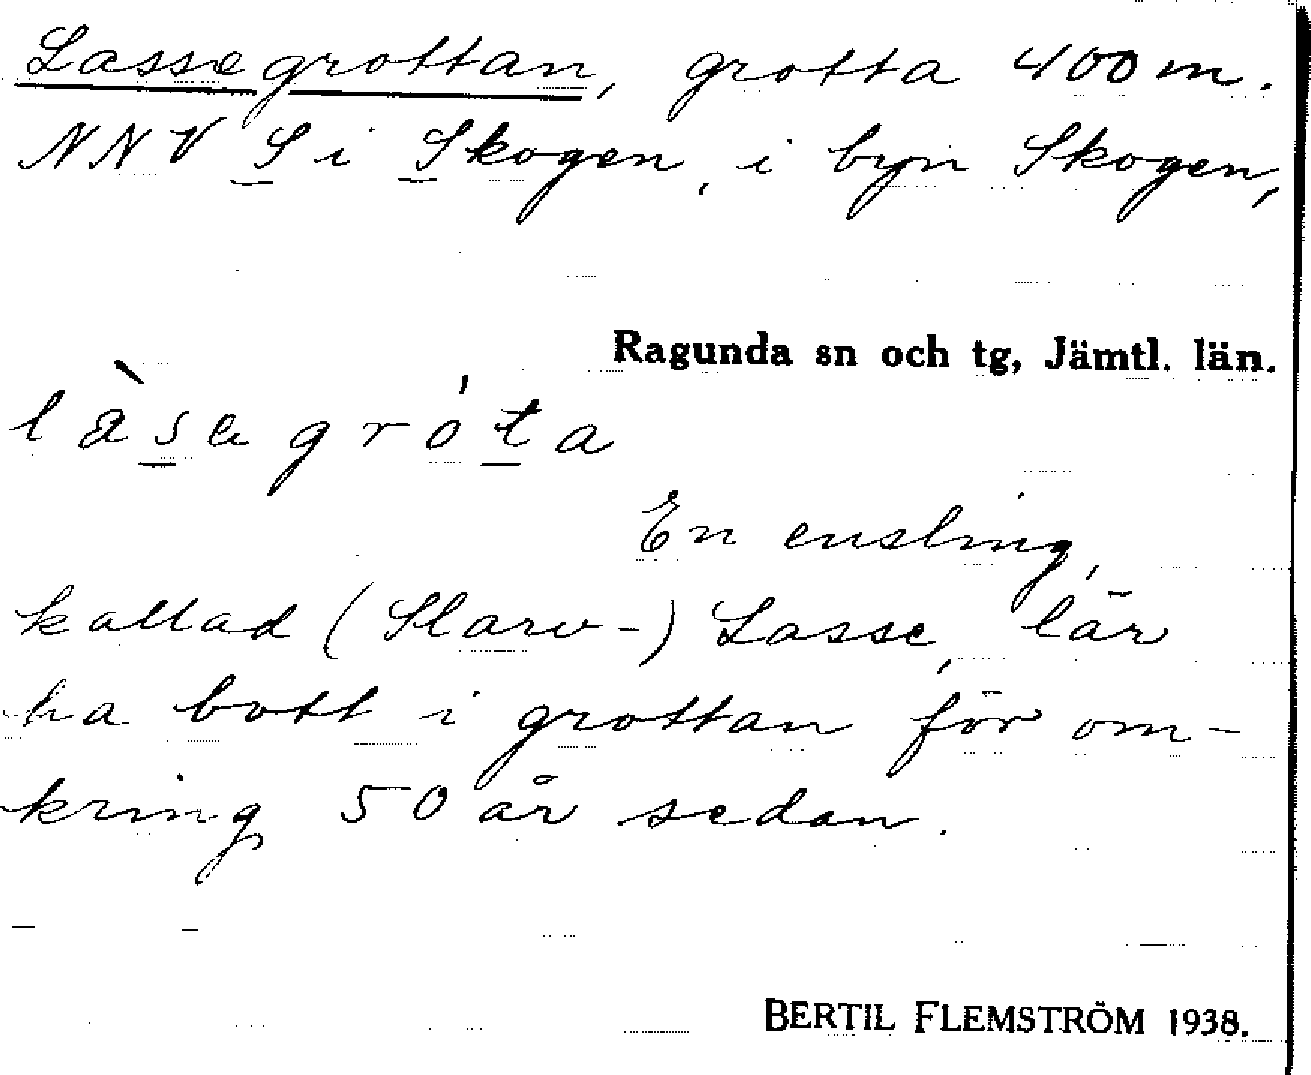 Lassegrottan, grotta 400 m.
NNV S i Skogen, i byn Skogen,
Ragunda sn och tg, Jämtl. län.
làsagróta
En ensling,
kallad (Slarv-) Lasse, lär
ha bott i grottan för om-
kring 50 år sedan.
BERTIL FLEMSTRÖM 1938.